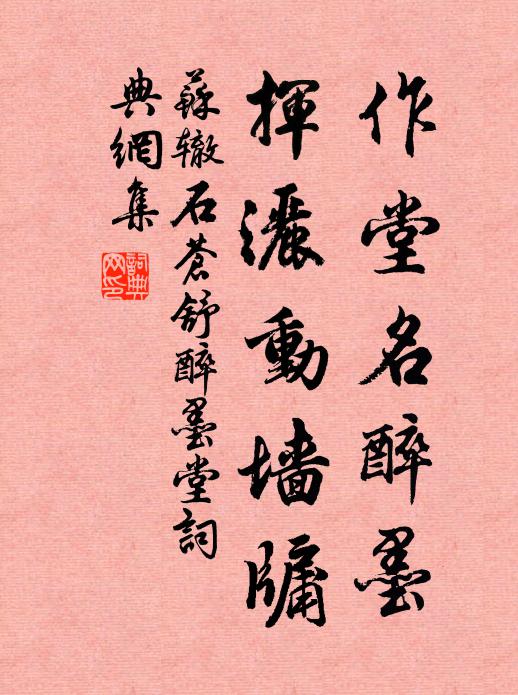 作堂名醉墨
揮灑動墙牖
蘇辙石蒼舒醉墨堂詞
典網集
詞典
网印